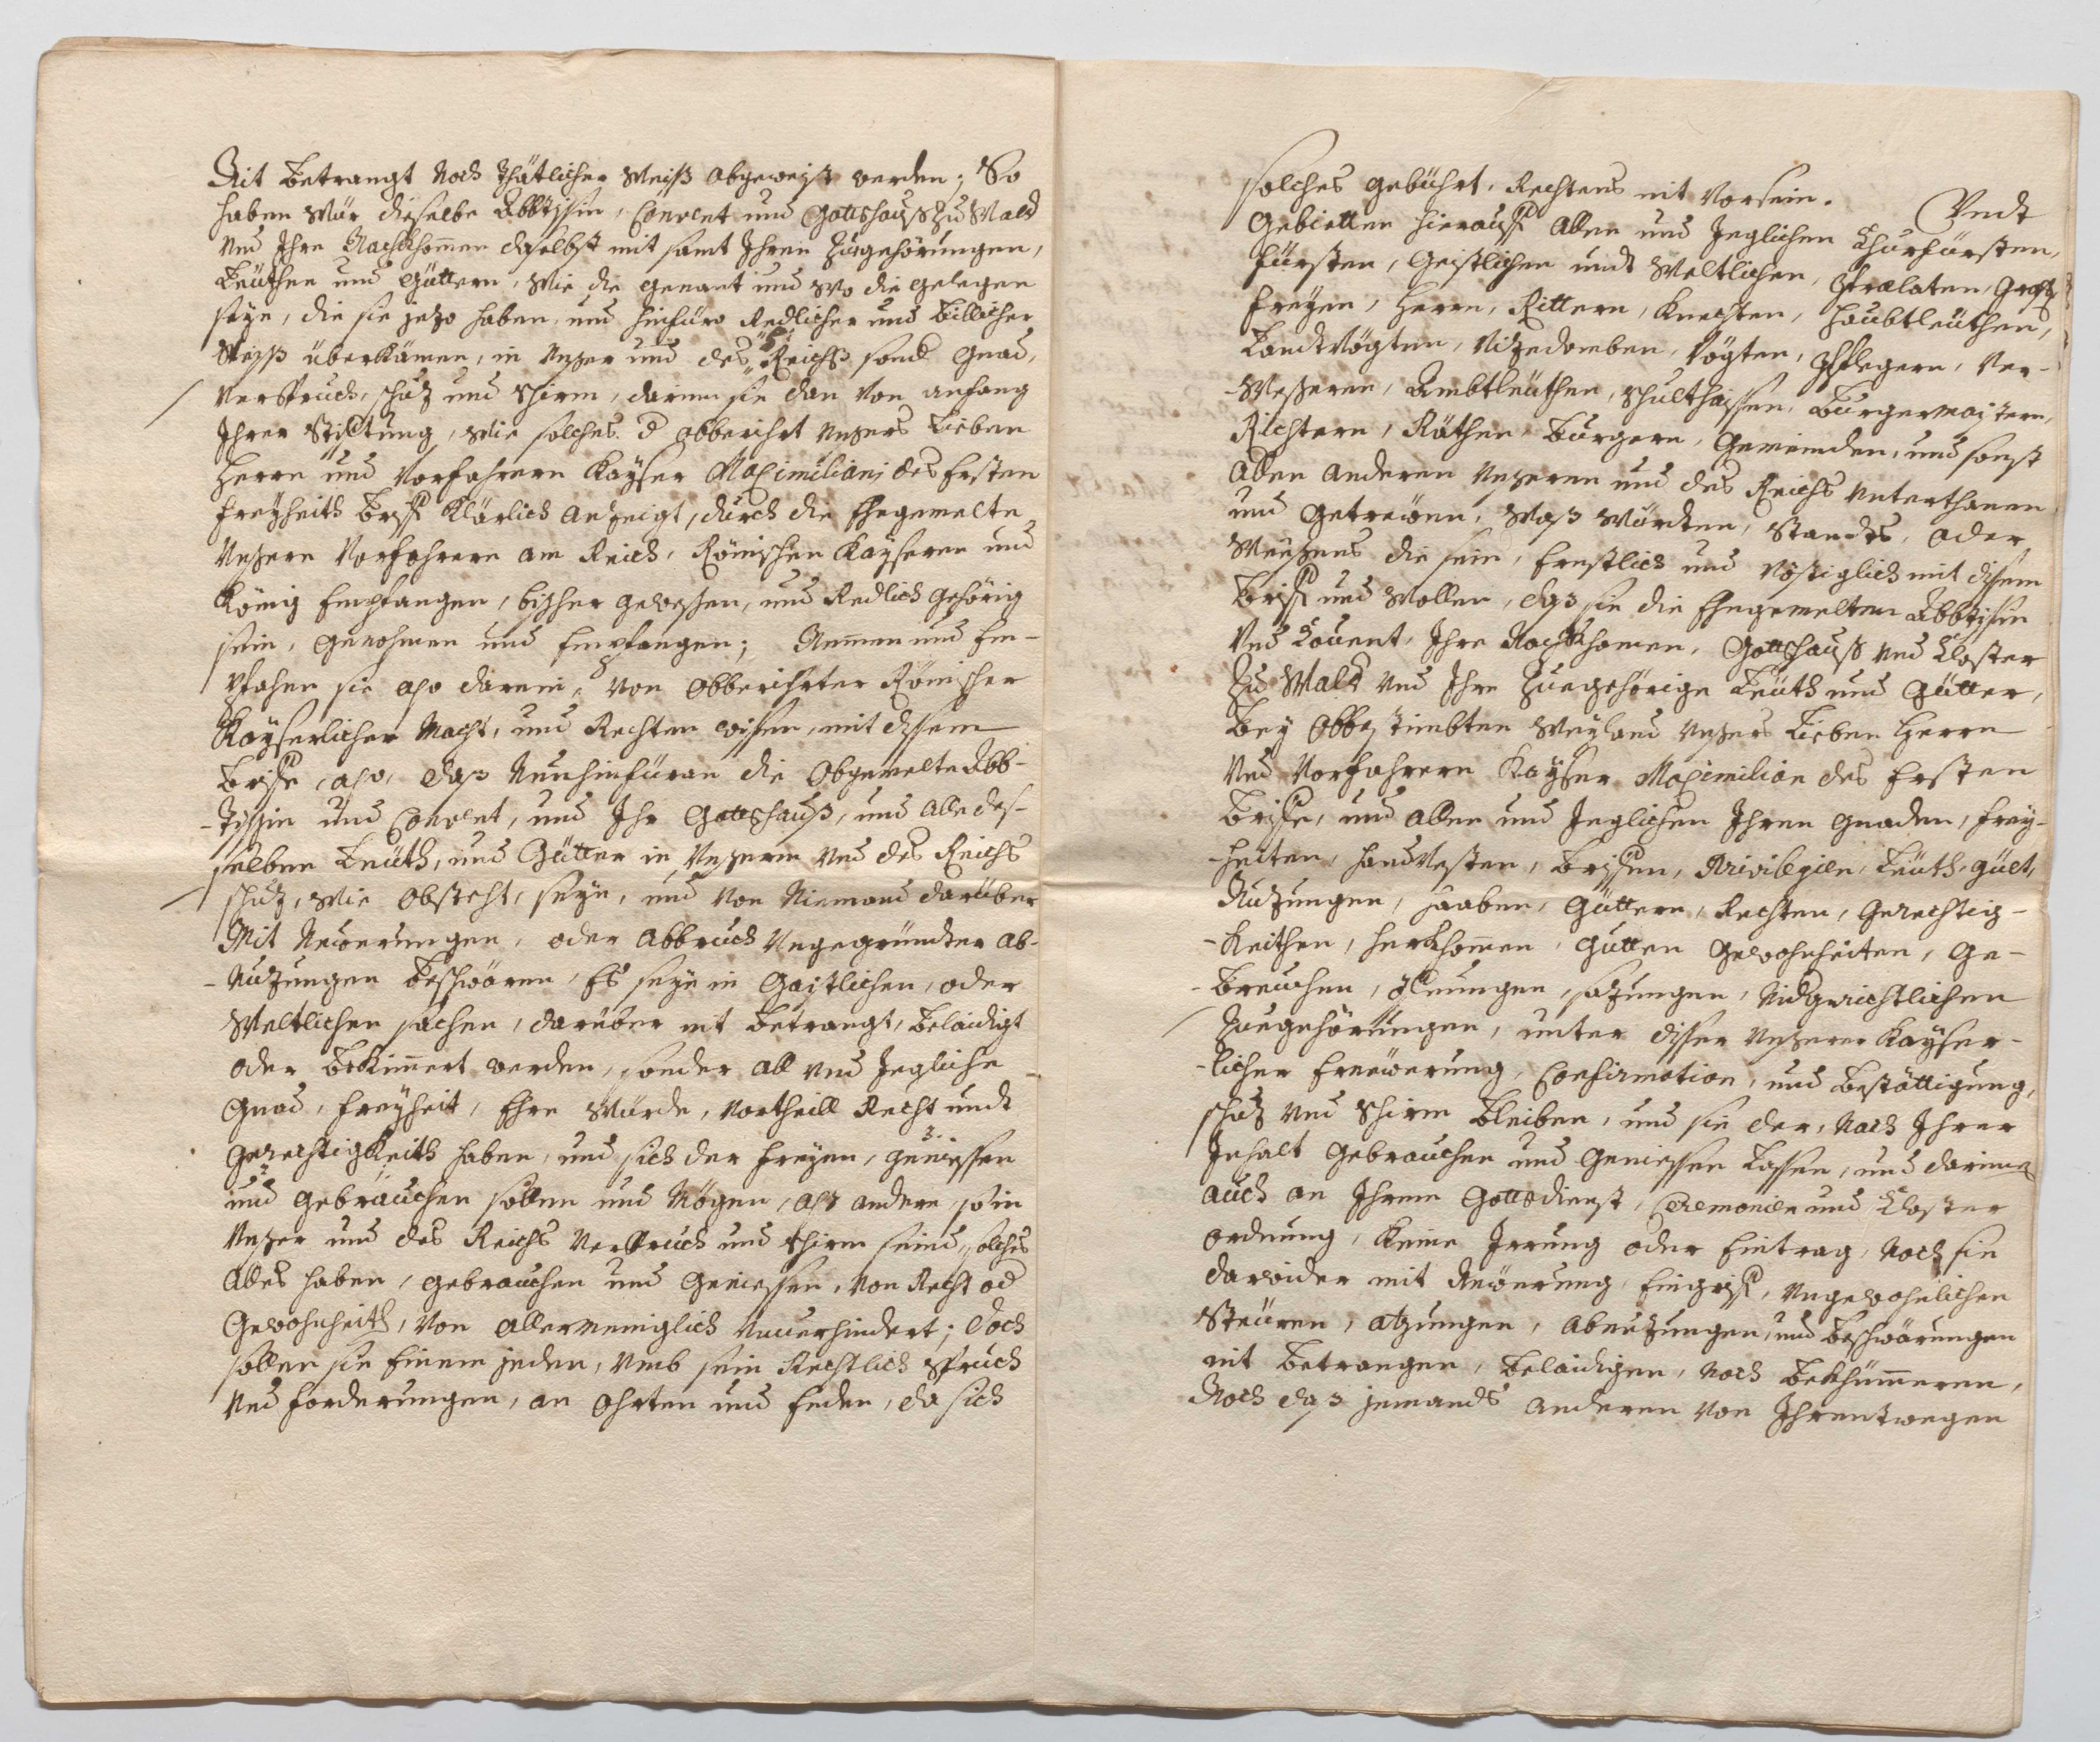 Nit betrangt noch Thätlicher Weiß abgeweist werden; So
haben Wür dieselbe Abbtissin, Convent und Gottshauß zu Wald
und Ihre Nachkhommen daselbst mit samt Ihren Zugehörungen,
Leüthen und Güttern, Wie die genant und Wo die gelegen
seyn, die sie jezo haben, und hinfüro Redlicher und Billicher
Weiß überkämen, in Unßer und des Reichß sond Gnad,
Verspruch, schuz und schirm, darinn sie dan von anfang
Ihrer Stifftung, Wie solches d obberihrt Unßers Lieben
Herrn und Vorfahrern Kayser Maximiliani des Ersten
Freyheith Brieff Klärlich anzeigt, durch die Ehegemelte
Unßern Vorfahrern am Reich, Römischen Kayseren und
König Empfangen, bißher geweßen, und Redlich gehörig
sein, genohmen und Empfangen; Nemmen und Em-
pfahen sie also darein, von obberihrter Römischer
Kayserlicher Macht, und Rechten wissen, mit dissem
Brieff, also, daß Nun hinfüran die Obgemelte Abb-
-tissin und Convent, und Ihr Gottshauß, und Alle des-
selben Leüth, und Gütter in Unßerm und des Reichs
schuz, Wie obsteht, seyn, und von Niemand darüber
Mit Neüerungen, oder Abbruch Ungegründter ab-
-nuzungen beschwären, Es seye in Gaistlichen, oder
Weltlichen sachen, darüber nit betrangt, belaidigt
oder bekimmert werden, sonder all und Jegliche
Gnad, Freyheit, Ehre Würde, Vortheill Recht undt
Gerechtigkeith haben, und sich der freyen, geniessen
und gebrauchen sollen und Mögen, alß andere, so in
Unßer und des Reichs Verspruch und schirm seind, solches
Alles haben, gebrauchen und geniessen, von Recht od
Gewohnheith, von allermeniglich unuerhindert; doch
sollen sie Einem jeden, umb sein Rechtlich Spruch
und forderungen, an ohrten und Enden, da sich
solches gebührt, Rechtens nit Vorsein. Undt
Gebietten hierauff Allen und Jeglichen Churfürsten,
Fürsten, Geistlichen undt Weltlichen, Prælaten, Graffen
Freyen, Herrn, Rittern, Knechten, Haubtleüthen,
Landtvögten, Vizedomben, Vögten, Pflegern, Ver-
-Weßeren, Ambtleüthen, Schulthaissen, Burgermaistern,
Richtern, Räthen, Burgern, Gemeinden, und sonst
allen anderen Unßeren und des Reichs Unterthanen
und Getreüen, Waß Würden, Standts, oder
Weeßens die sein, Ernstlich und Vöstiglich mit dissem
Brieff und Wollen, daß sie die Ehegemelten Abbtissin
und Conuent, Ihre Nachkhomen, Gottshauß und Closter
zu Wald und Ihre Zuegehörige Leüth und Gütter,
Bey obbestimbten Weyland Unßers Lieben Herrn
und Vorfahrern Kayser Maximilian des Ersten
Brieffe, und allen und Jeglichen Ihren Gnaden, Frey-
-heiten, handvesten, Brieffen, Privilegien, Leüth, Gült,
Nuzungen, haaben, Güttern, Rechten, Gerechtig-
-Keithen, herkhommen, Gutten Gewohnheiten, Ge-
-breuchen, Ordnungen, sazungen, Nidgerichtlichen
Zuegehörungen, unter disser Unßerer Kayser-
-licher Erneüerung, Confirmation, und Bestättigung,
schuz und schirm bleiben, und sie der, nach Ihrer
Inhalt gebrauchen und geniessen Lassen, und darinnen
auch an Ihrem Gottsdienst, Ceremonien und Closter
ordnung, Keine Irrung oder Eintrag, noch sie
darwider mit Neüerung, Eingriff, Ungewohnlichen
Steüren, atzungen, Abnuzungen, und beschwärungen
nit betrangen, belaidigen, noch bekhümmeren,
Noch daß jemands anderen von Ihrentwegen